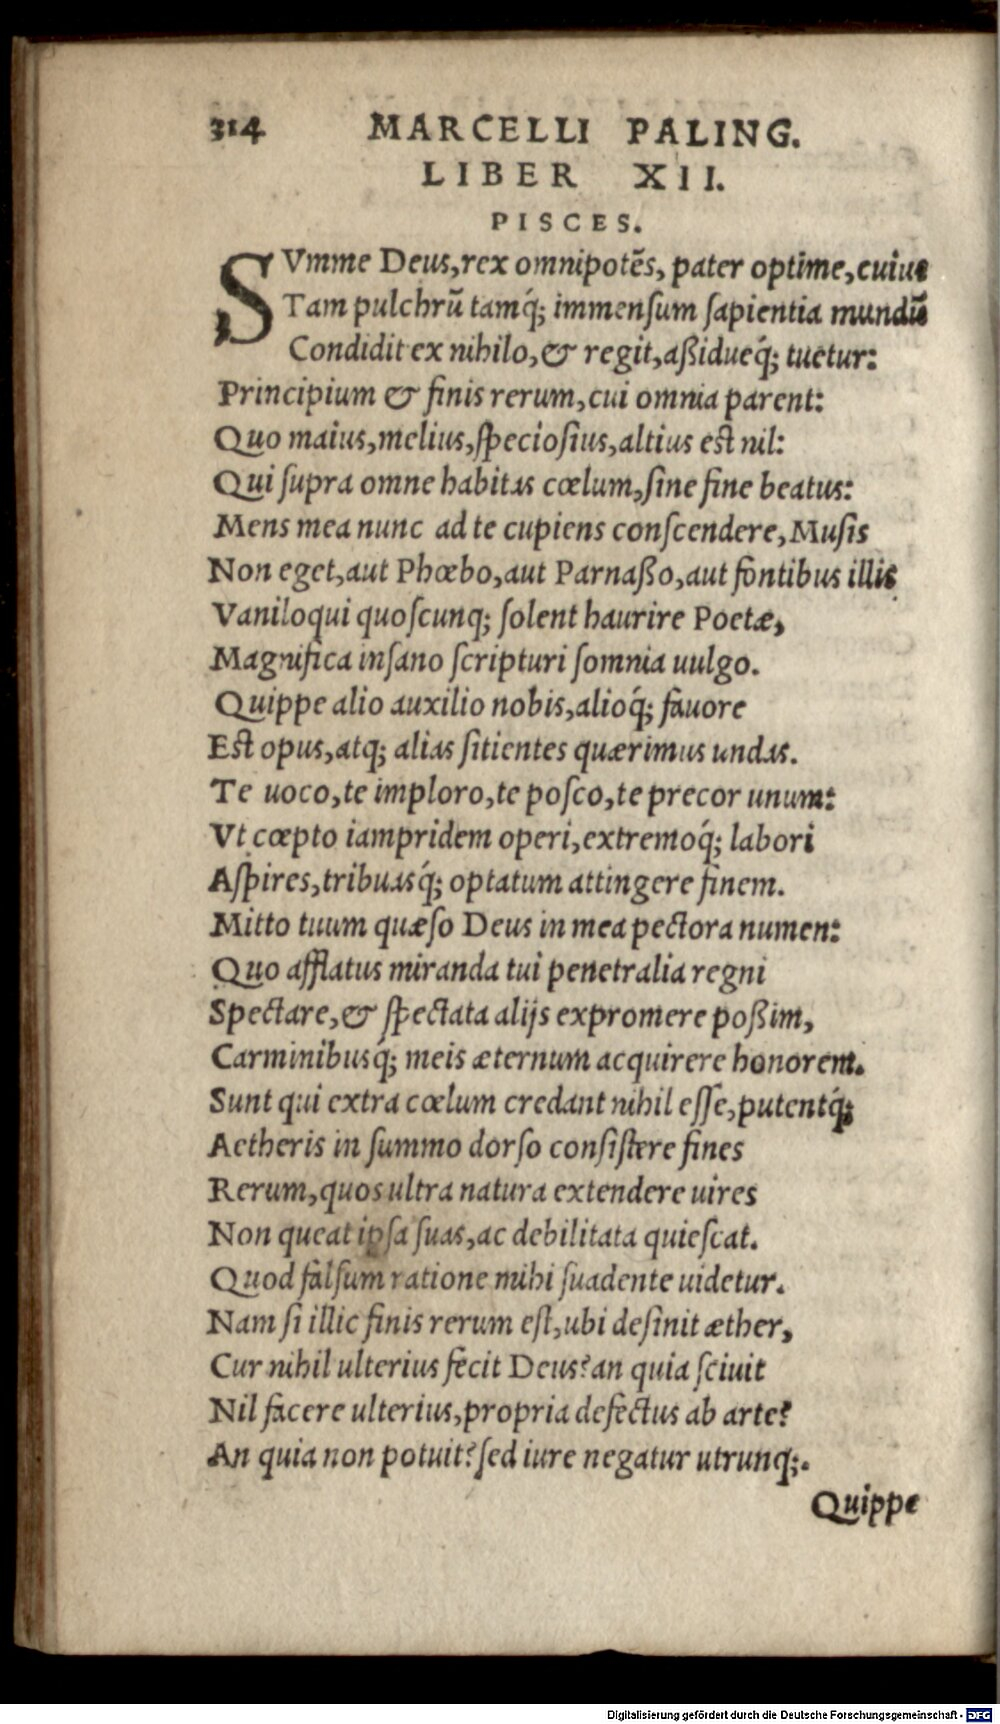 314 MARCELLI PALING.
LIBER XII.
PISCES.
SVmme Deus, rex omnipotēs, pater optime, cuius
Tam pulchrū tamq́; immenſum ſapientia mundū
Condidit ex nihilo, & regit, aßidueq́; tuetur:
Principium & finis rerum, cui omnia parent:
Quo maius, melius, ſpecioſius, altius est nil:
Qui ſupra omne habitas cœlum, ſine fine beatus:
Mens mea nunc ad te cupiens conſcendere, Muſis
Non eget, aut Phœbo, aut Parnaßo, aut fontibus illis
Vaniloqui quoſcunq; ſolent haurire Poetæ,
Magnifica inſano ſcripturi ſomnia uulgo.
Quippe alio auxilio nobis, alioq́; fauore
Est opus, atq; alias ſitientes quærimus undas.
Te uoco, te imploro, te poſco, te precor unum:
Vt cœpto iampridem operi, extremoq́; labori
Aſpires, tribuasq́; optatum attingere finem.
Mitto tuum quæſo Deus in mea pectora numen:
Quo afflatus miranda tui penetralia regni
Spectare, & ſpectata alijs expromere poßim,
Carminibusq́; meis æternum acquirere honorem.
Sunt qui extra cœlum credant nihil eſſe, putentq́;
Aetheris in ſummo dorſo conſiſtere fines
Rerum, quos ultra natura extendere uires
Non queat ipſa ſuas, ac debilitata quieſcat.
Quod falſum ratione mihi ſuadente uidetur.
Nam ſi illic finis rerum eſt, ubi deſinit æther,
Cur nihil ulterius fecit Deus? an quia ſciuit
Nil facere ulterius, propria defectus ab arte?
An quia non potuit? ſed iure negatur utrunq;.
Quippe
Digitalisierung gefördert durch die Deutsche Forschungsgemeinschaft - DFG